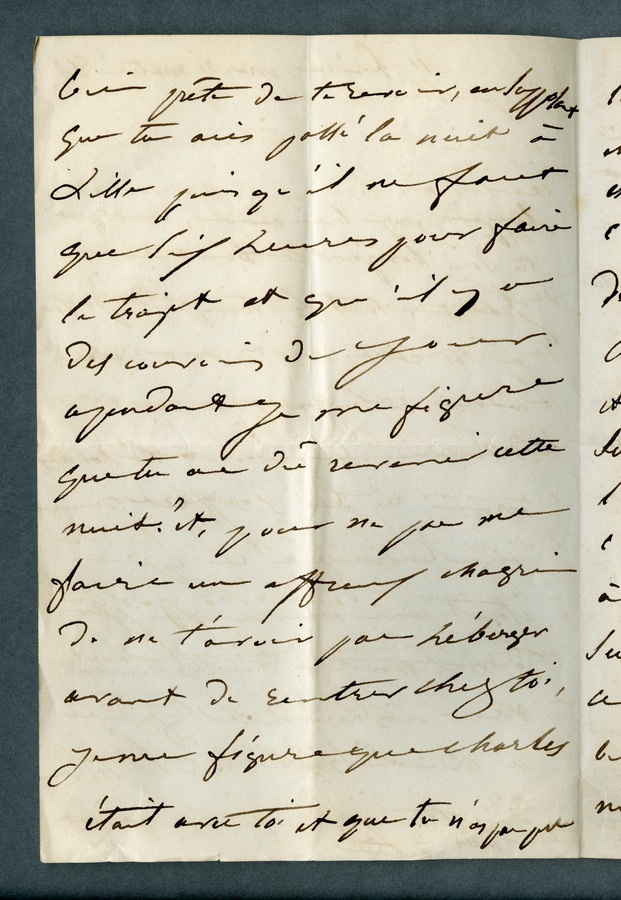 bien prête de te revoir, en supposant
que tu aies passé la nuit à
Lille puisqu'il ne faut
que six heures pour faire
le trajet et qu'il y a
des convois de jour.
cependant je me figure
que tu as dû revenir cette
nuit. Et, pour ne pas me
faire un affreux chagrin
de ne t'avoir pas héberger
avant de rentrer chez toi,
je me figure que Charles
était avec toi et que tu n'as pas pu